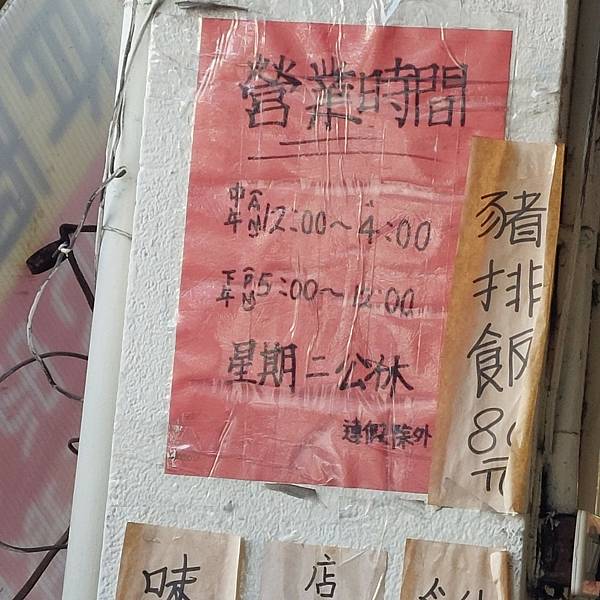 營業時間
中午(AM)12:00～4:00
下午(PM)5:00～12:00
星期二公休
連假除外
豬排飯80元
味
店